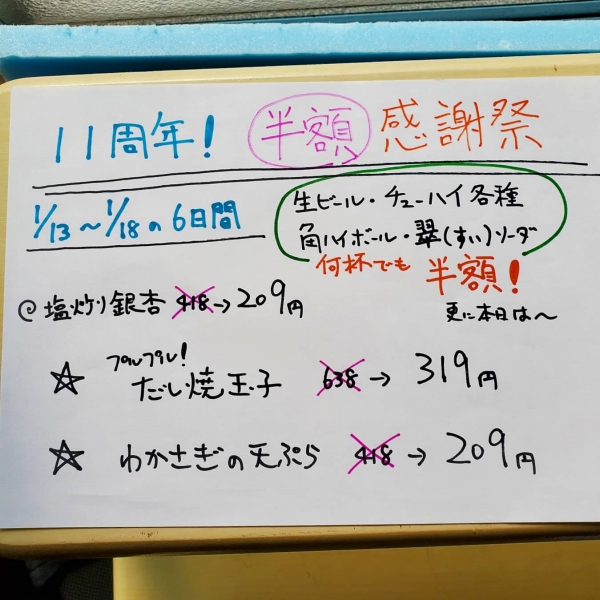 11周年! 半額 感謝祭
1/13〜1/18の6日間
生ビール・チューハイ各種
角ハイボール・翠(すい)ソーダ
何杯でも 半額!
@塩炒り銀杏 418→209円
更に本日は〜
プルプル!
☆ だし焼玉子 638→319円
☆ わかさぎの天ぷら 418→209円